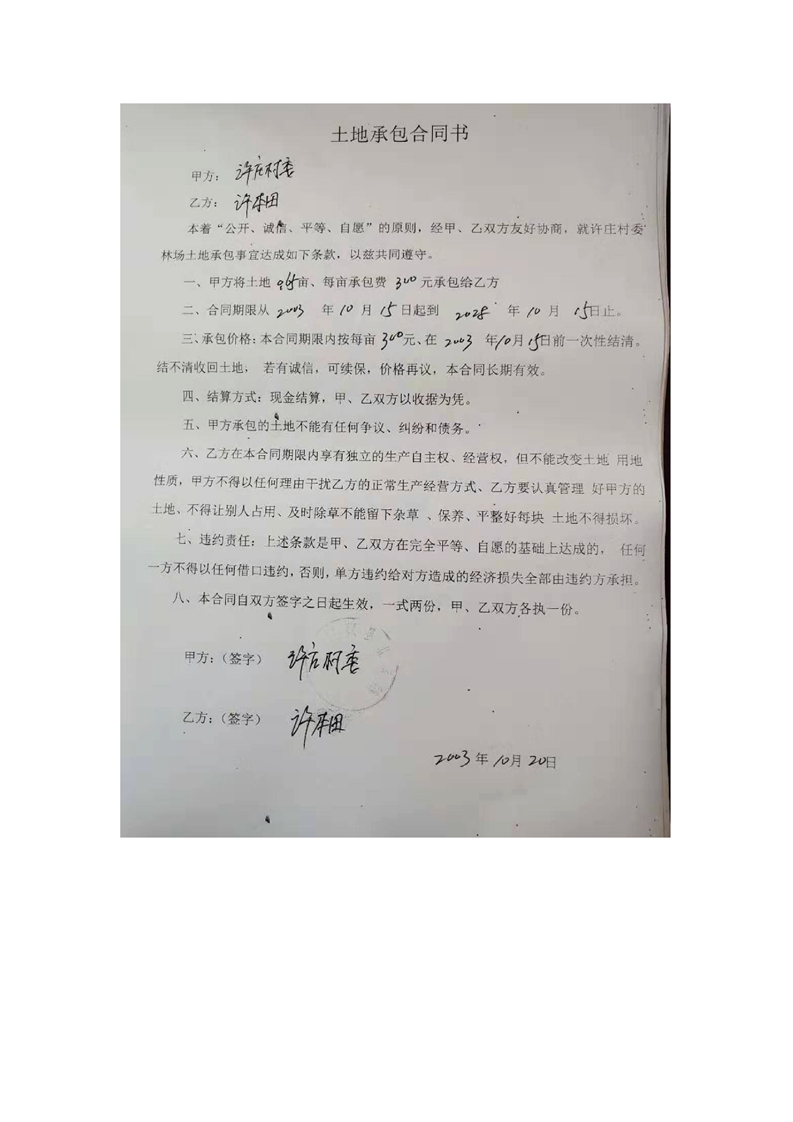 土地承包合同书
甲方：许庄村委
乙方：许本田
本着“公开、诚信、平等、自愿”的原则，经甲、乙双方友好协商，就许庄村委
林场土地承包事宜达成如下条款，以兹共同遵守。
一、甲方将土地 亩、每亩承包费 300 元承包给乙方
二、合同期限从 2003 年 10 月 15 日起到 2028 年 10 月 15日止。
三、承包价格：本合同期限内按每亩 300 元、在 2003 年 10 月 15日前一次性结清。
结不清收回土地， 若有诚信，可续保，价格再议，本合同长期有效。
四、结算方式：现金结算，甲、乙双方以收据为凭。
五、甲方承包的土地不能有任何争议、纠纷和债务。
六、乙方在本合同期限内享有独立的生产自主权、经营权，但不能改变土地 用地
性质，甲方不得以任何理由干扰乙方的正常生产经营方式、乙方要认真管理 好甲方的
土地、不得让别人占用、及时除草不能留下杂草 、保养、平整好每块 土地不得损坏。
七、违约责任：上述条款是甲、乙双方在完全平等、自愿的基础上达成的， 任何
一方不得以任何借口违约，否则，单方违约给对方造成的经济损失全部由违约方承担。
八、本合同自双方签字之日起生效，一式两份，甲、乙双方各执一份。
甲方：（签字） 许庄村委
乙方：（签字） 许本田
2003 年 10 月 20日